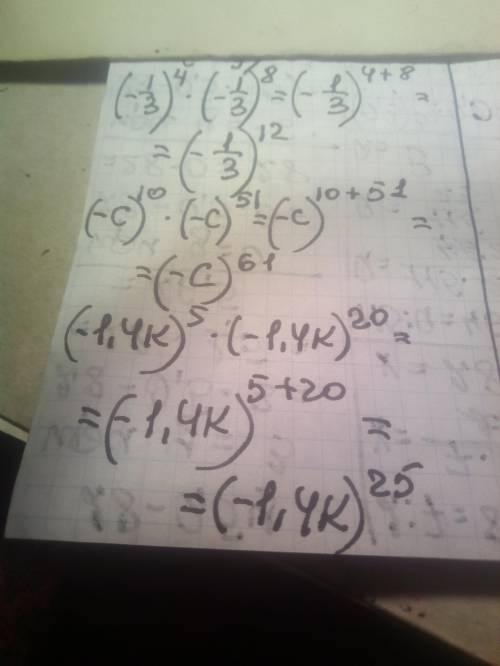 (-1/3)^4 · (-1/3)^8 = (-1/3)^{4+8} =
= (-1/3)^{12}
(-c)^{10} · (-c)^{51} = (-c)^{10+51} =
= (-c)^{61}
(-1,4к)^5 · (-1,4к)^{20} =
= (-1,4к)^{5+20} =
= (-1,4к)^{25}